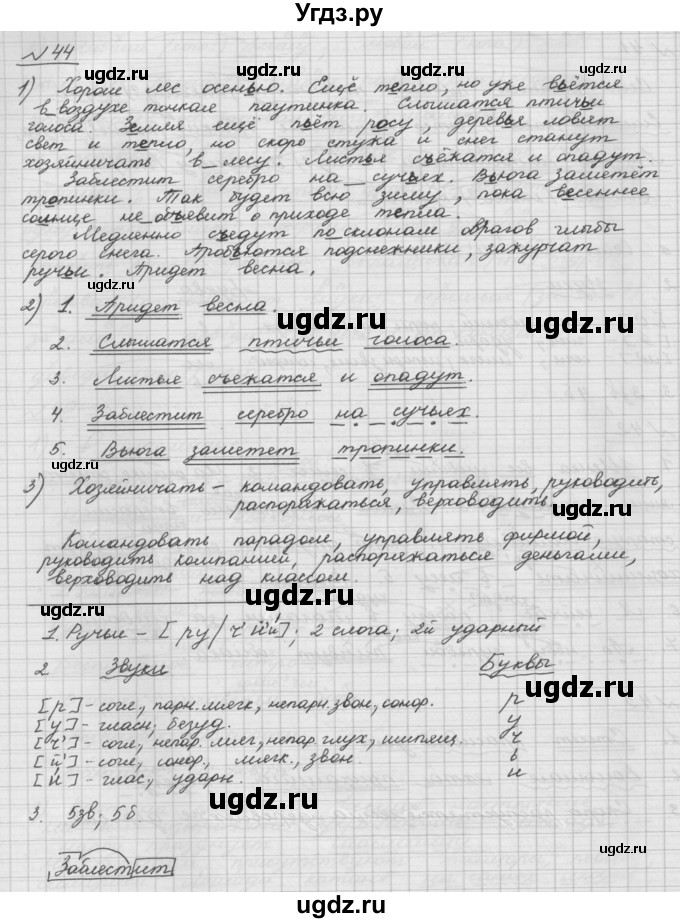 Угдз.ру
№ 44
1) Хорош лес осенью. Ещё тепло, но уже вьётся
в воздухе тонкая паутинка. Слышатся птичьи
голоса. Земля ещё пьёт росу, деревья ловят
свет и тепло, но скоро стужа и снег станут
хозяйничать в лесу. Листья съёжатся и опадут.
Заблестит серебро на сучьях. Вьюга заметёт
тропинки. Так будет всю зиму, пока весеннее
солнце не объявит о приходе тепла.
Медленно съедут по склонам оврагов глыбы
серого снега. Пробьются подснежники, зажурчат
ручьи. Придет весна.
ugdz.ru
2) 1. Придет весна.
ugdz.ru
ugdz.ru
2. Слышатся птичьи голоса.
3. Листья съежатся и опадут.
ugdz.ru
4. Заблестит серебро на сучьях.
5. Вьюга заметет тропинки.
ugdz.ru
ugdz.ru
3) Хозяйничать – командовать, управлять, руководить,
распоряжаться, верховодить
ugdz.ru
Командовать парадом, управлять фирмой,
руководить компанией, распоряжаться деньгами,
верховодить над классом.
ugdz.ru
1. Ручьи – [ру/ч'й'и]; 2 слога; 2й ударный
2 Звуки Буквы
ugdz.ru
[р] – согл, парн. мягк, непарн. звон, сонор. р
[у] – гласн; безуд. у
[ч'] – согл, непар. мягк, непар. глух, шипящ ч
[й'] – согл, сонор, мягк., звон. ь
[и] – глас, ударн. и
ugdz.ru
3. 5зв; 5 б.
ugdz.ru
Заблестит
ugdz.ru
ugdz.ru